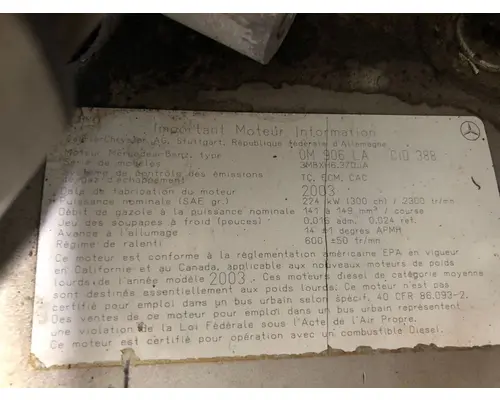 Important Moteur Information
AG, Stuttgart, République fédérale d'Allemagne
Moteur Mercedes-Benz, type OM 906 LA CID 388
Série de modèles
de contrôle des émissions
gaz d'échappement TC, ECM, CAC
Date de fabrication du moteur 2003
Puissance nominale (SAE gr.) 224 kW (300 ch) / 2300 tr/min
Débit de gazole à la puissance nominale 141 à 149 mm³ / course
Jeu des soupapes à froid (pouces) 0.016 adm. 0.024 ref.
Avance à l'allumage 14 ±1 degrés APMH
Régime de ralenti 600 ±50 tr/min
Ce moteur est conforme à la réglementation américaine EPA en vigueur
en Californie et au Canada, applicable aux nouveaux moteurs de poids
lourds de l'année modèle 2003. Ces moteurs diesel de catégorie moyenne
sont destinés essentiellement aux poids lourds. Ce moteur n'est pas
certifié pour emploi dans un bus urbain selon spécif. 40 CFR 86.093-2.
Des ventes de ce moteur pour emploi dans un bus urbain représentent
une violation de la Loi Fédérale sous l'Acte de l'Air Propre.
Ce moteur est certifié pour opération avec un combustible Diesel.